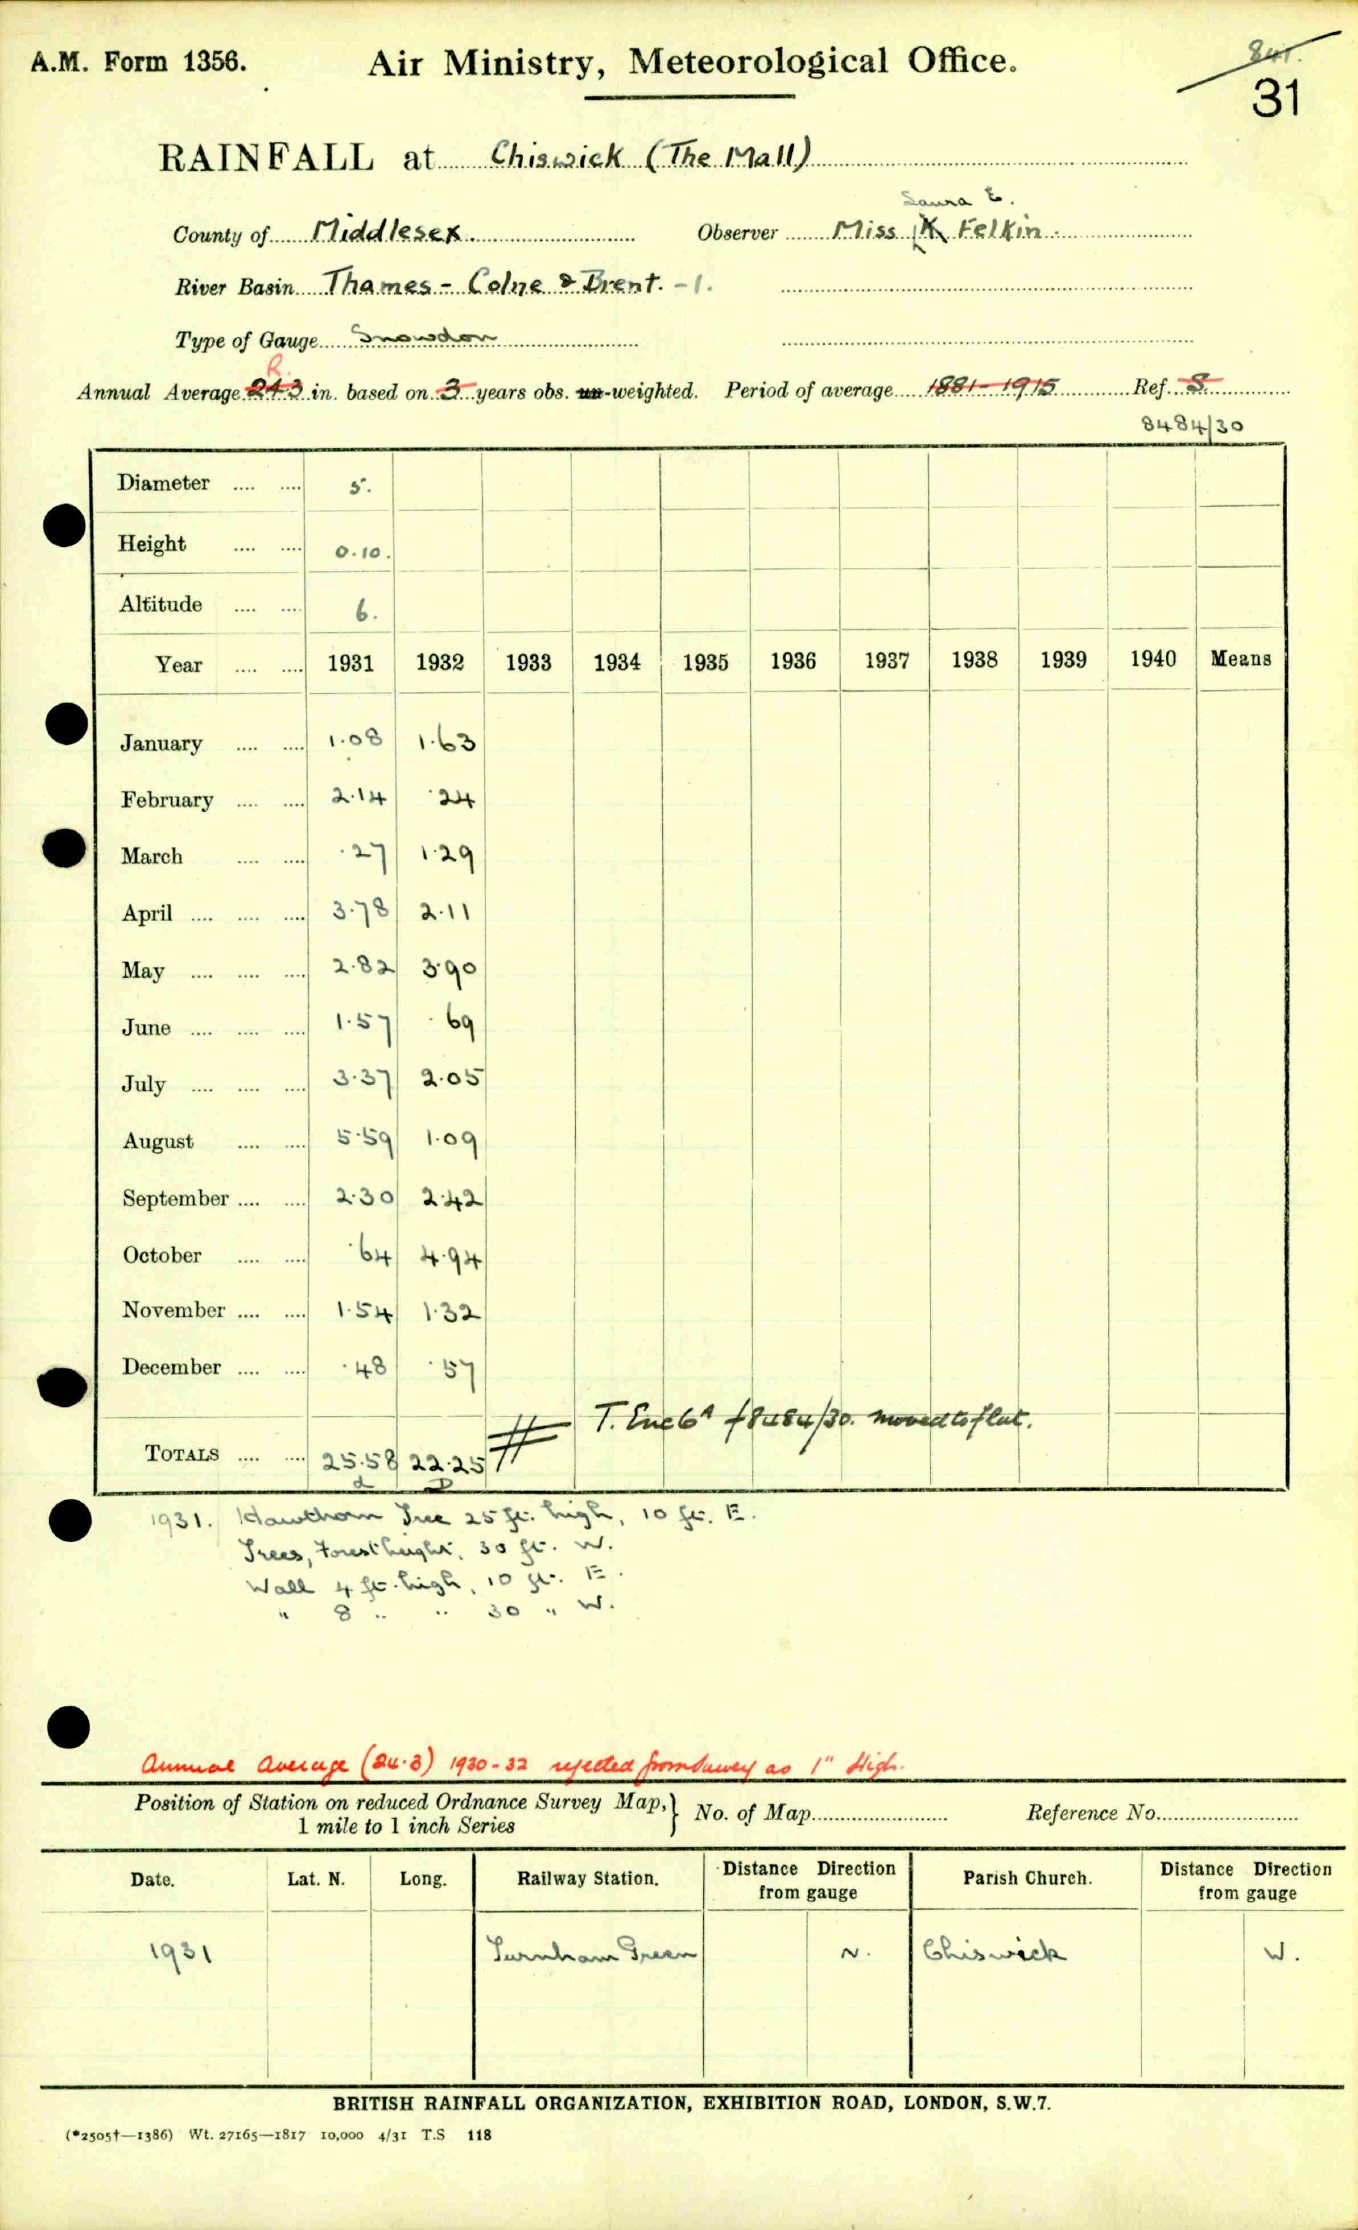 A.M. Form 1356. Air Ministry, Meteorological Office. 841.
31
RAINFALL at Chiswick (The Mall)
Laura E.
County of Middlesex. Observer Miss K Felkin.
River Basin Thames - Colne & Brent. -1.
Type of Gauge Snowdon
R.
Annual Average 24.3 in. based on 3 years obs. un-weighted. Period of average 1881-1915 Ref. S
8484/30
Diameter .... .... 5.
Height .... .... 0.10.
Altitude .... .... 6.
Year .... .... 1931 1932 1933 1934 1935 1936 1937 1938 1939 1940 Means
January .... .... 1.08 1.63
February .... .... 2.14 .24
March .... .... .27 1.29
April .... .... .... 3.78 2.11
May .... .... .... 2.82 3.90
June .... .... .... 1.57 .69
July .... .... .... 3.37 2.05
August .... .... 5.59 1.09
September .... .... 2.30 2.42
October .... .... .64 4.94
November .... .... 1.54 1.32
December .... .... .48 .57
T. Enc 6A f 8484/30. moved to flat.
TOTALS .... .... 25.58 22.25
d D
1931. Hawthorn Tree 25 ft. high, 10 ft. E.
Trees, Forest height, 30 ft. W.
Wall 4 ft. high, 10 ft. E.
" 8 " " 30 " W.
Annual Average (24.3) 1930-32 rejected from Survey as 1" High.
Position of Station on reduced Ordnance Survey Map,} No. of Map Reference No.
1 mile to 1 inch Series
Date. Lat. N. Long. Railway Station. Distance Direction from gauge Parish Church. Distance Direction from gauge
1931 Turnham Green N. Chiswick W.
BRITISH RAINFALL ORGANIZATION, EXHIBITION ROAD, LONDON, S.W.7.
(*2505†—1386) Wt. 27165—1817 10,000 4/31 T.S 118